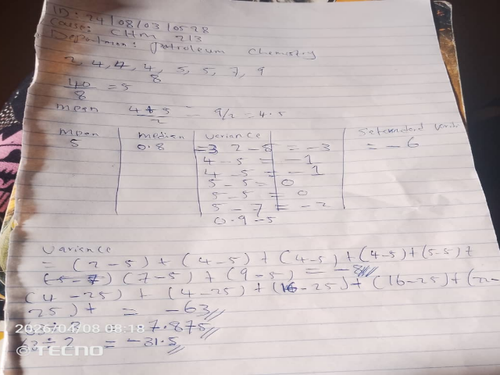 ID: 24/08/03/0528
Course: CHM 213
Department: Petroleum Chemistry
2, 4, 4, 4, 5, 5, 7, 9
8
40/8 = 5
mean 4+5/2 = 9/2 = 4.5
mean median variance
5 0.8 = 3 2 - 5 = -3 = -6
4 - 5 = -1
4 - 5 = -1
5 - 5 = 0
5 - 5 = 0
5 - 7 = -2
0.9 - 5
Variance
= (2-5) + (4-5) + (4-5) + (4-5) + (5-5) +
(5-7) (7-5) + (9-5) = -8
(4-25) + (4-25) + (16-25) + (16-25) +
25) + = -63
7.875
÷ 2 = -31.5
2026/04/08 08:18
TECNO